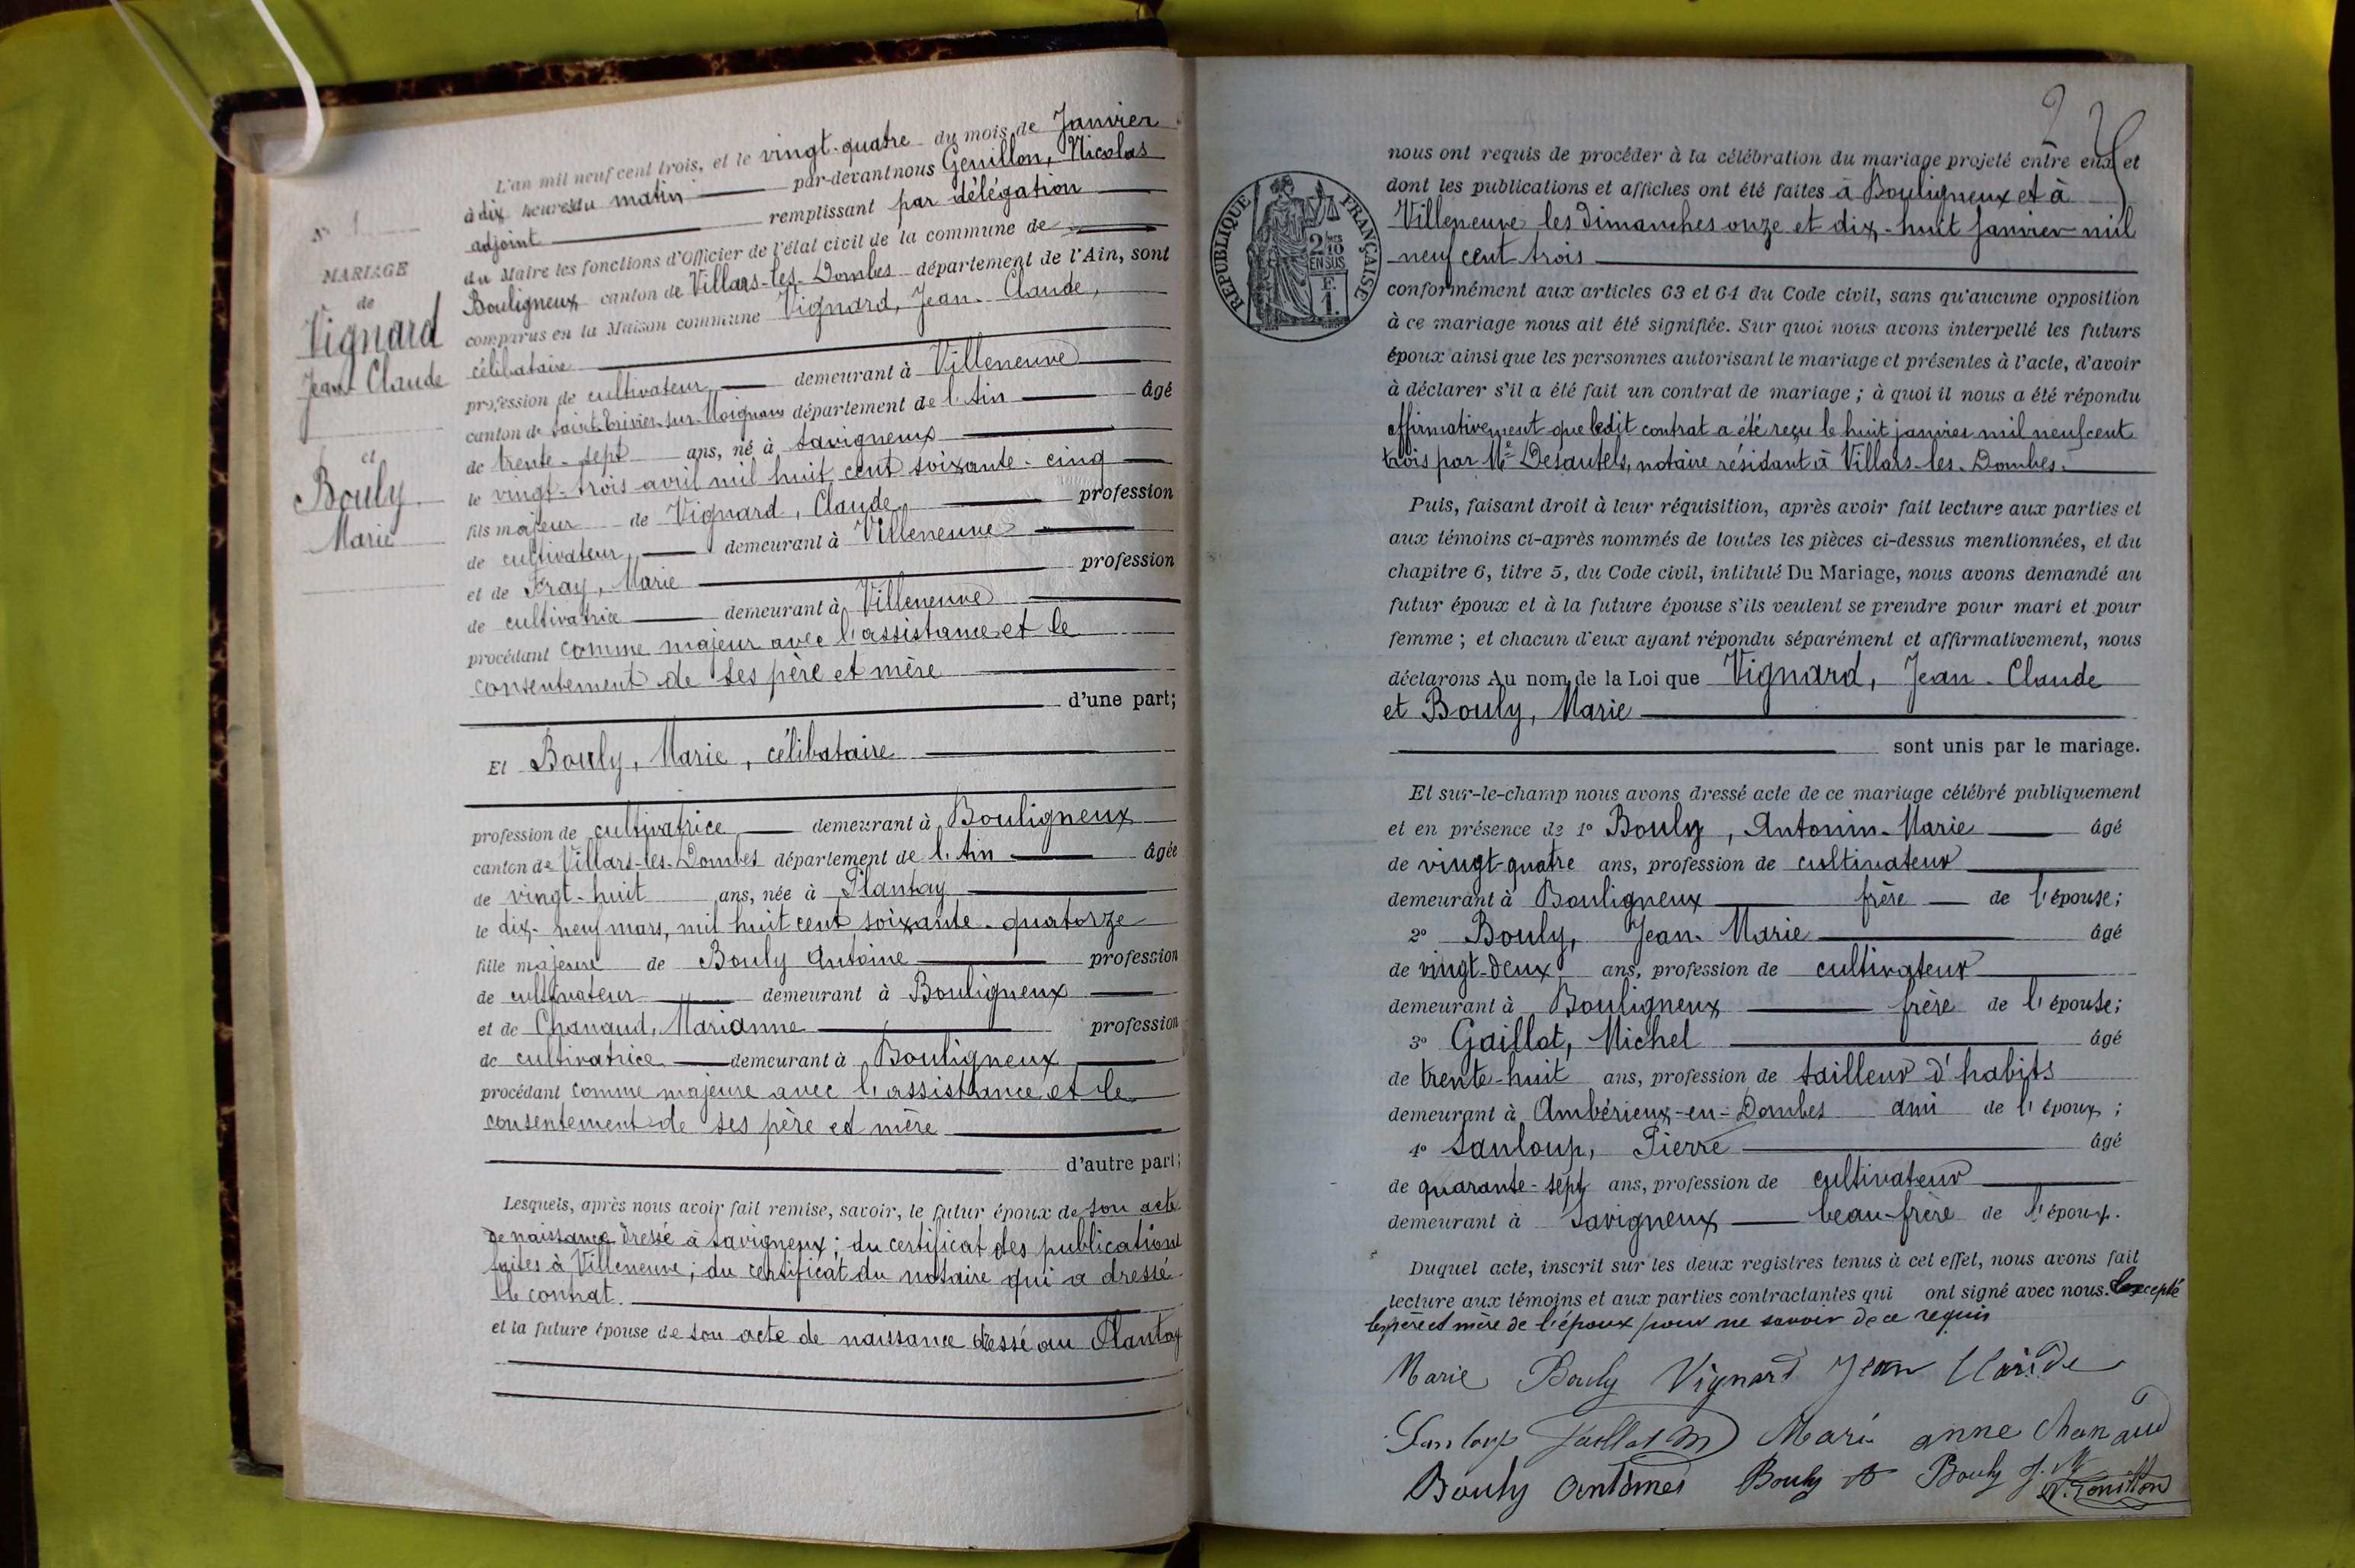 L'an mil neuf cent trois, et le vingt-quatre du mois de Janvier
à dix heures du matin par-devant nous Genillon, Nicolas
adjoint remplissant par délégation
du Maire les fonctions d'Officier de l'état civil de la commune de
Bouligneux canton de Villars-les-Dombes département de l'Ain, sont
comparus en la Maison commune Vignard, Jean-Claude,
célibataire
profession de cultivateur demeurant à Villeneuve
canton de Saint-Trivier-sur-Moignans département de l'Ain âgé
de trente-sept ans, né à Savigneux
le vingt-trois avril mil huit cent soixante-cinq
fils majeur de Vignard, Claude, profession
de cultivateur, demeurant à Villeneuve
et de Fray, Marie profession
de cultivatrice demeurant à Villeneuve
procédant comme majeur avec l'assistance et le
consentement de ses père et mère
d'une part;
Et Bouly, Marie, célibataire
profession de cultivatrice demeurant à Bouligneux
canton de Villars-les-Dombes département de l'Ain âgée
de vingt-huit ans, née à Plantay
le dix-neuf mars, mil huit cent soixante-quatorze
fille majeure de Bouly Antoine profession
de cultivateur demeurant à Bouligneux
et de Chanaud, Marianne profession
de cultivatrice demeurant à Bouligneux
procédant comme majeure avec l'assistance et le
consentement de ses père et mère
d'autre part;
Lesquels, après nous avoir fait remise, savoir, le futur époux de son acte
de naissance dressé à Savigneux; du certificat des publications
faites à Villeneuve; du certificat du notaire qui a dressé
le contrat.
et la future épouse de son acte de naissance dressé au Plantay
N° 1
MARIAGE
de
Vignard
Jean-Claude
et
Bouly
Marie
2
RÉPUBLIQUE FRANÇAISE
2/10
EN SUS
F.
1.
nous ont requis de procéder à la célébration du mariage projeté entre eux et
dont les publications et affiches ont été faites à Bouligneux et à
Villeneuve les dimanches onze et dix-huit Janvier mil
neuf cent trois
conformément aux articles 63 et 64 du Code civil, sans qu'aucune opposition
à ce mariage nous ait été signifiée. Sur quoi nous avons interpellé les futurs
époux ainsi que les personnes autorisant le mariage et présentes à l'acte, d'avoir
à déclarer s'il a été fait un contrat de mariage; à quoi il nous a été répondu
affirmativement que ledit contrat a été reçu le huit janvier mil neuf cent
trois par Me Desautels, notaire résidant à Villars-les-Dombes.
Puis, faisant droit à leur réquisition, après avoir fait lecture aux parties et
aux témoins ci-après nommés de toutes les pièces ci-dessus mentionnées, et du
chapitre 6, titre 5, du Code civil, intitulé Du Mariage, nous avons demandé au
futur époux et à la future épouse s'ils veulent se prendre pour mari et pour
femme; et chacun d'eux ayant répondu séparément et affirmativement, nous
déclarons Au nom de la Loi que Vignard, Jean-Claude
et Bouly, Marie
sont unis par le mariage.
Et sur-le-champ nous avons dressé acte de ce mariage célébré publiquement
et en présence de 1° Bouly, Antonin-Marie âgé
de vingt-quatre ans, profession de cultivateur
demeurant à Bouligneux frère de l'épouse;
2° Bouly, Jean-Marie âgé
de vingt-deux ans, profession de cultivateur
demeurant à Bouligneux frère de l'épouse;
3° Gaillat, Michel âgé
de trente-huit ans, profession de tailleur d'habits
demeurant à Ambérieux-en-Dombes ami de l'époux;
4° Sanloup, Pierre âgé
de quarante-sept ans, profession de cultivateur
demeurant à Savigneux beau-frère de l'époux.
Duquel acte, inscrit sur les deux registres tenus à cet effet, nous avons fait
lecture aux témoins et aux parties contractantes qui ont signé avec nous. Excepté
les père et mère de l'époux pour ne savoir de ce requis
Marie Bouly Vignard Jean Claude
Sanloup Gaillat M Marie anne Chanaud
Bouly Antoine Bouly A Bouly J. M
N. Genillon